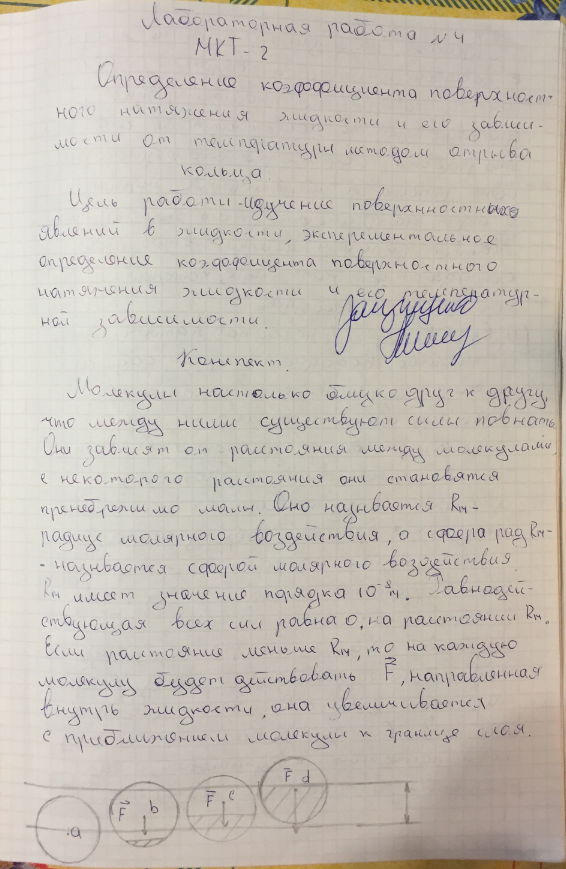 Лабораторная работа №4
МКТ-2
Определение коэффициента поверхност-
ного натяжения жидкости и его зависи-
мости от температуры методом отрыва
кольца.
Цель работы - изучение поверхностных
явлений в жидкости, эксперементальное
определение коэффицента поверхностного
натяжения жидкости и его температур-
ной зависимости.
Конспект.
Молекулы настолько близко друг к другу,
что между ними существуют силы
Они зависят от расстояния между молекулами,
с некоторого расстояния они становятся
пренебрежимо малы. Оно называется Rм -
радиус молярного воздействия, а сфера рад Rм -
- называется сферой молярного воздействия.
Rм имеет значение порядка 10⁻⁹м. Равнодей-
ствующая всех сил равна 0, на расстоянии Rм.
Если расстояние меньше Rм, то на каждую
молекулу будет действовать F⃗, направленная
внутрь жидкости, она увеличивается
с приближением молекулы к границе слоя.
a F⃗ b F⃗ c F⃗ d